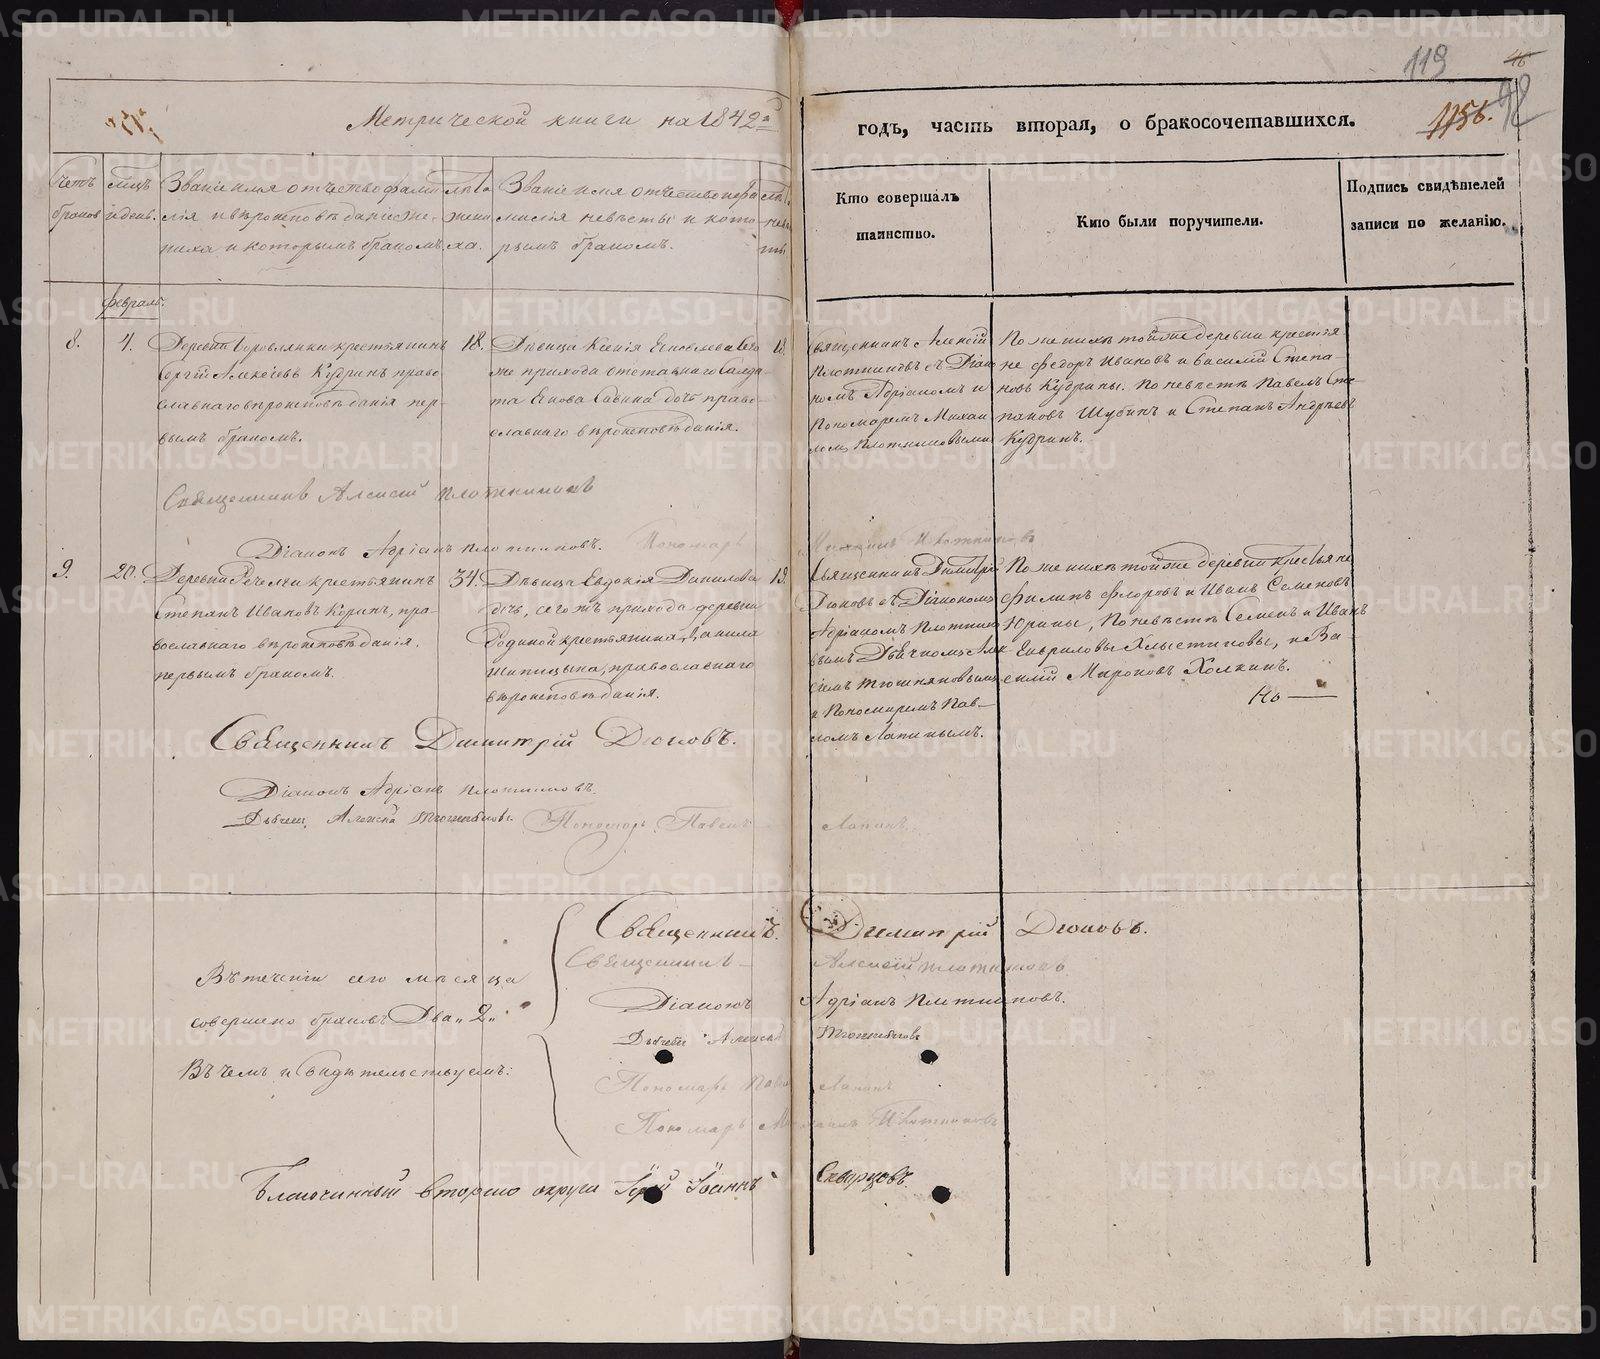 119
46
92
1156.
Метрической книги на 1842й
годъ, часть вторая, о бракосочетавшихся.
Счетъ браковъ
Мцъ и день.
Званіе имя отчество фами
лія и вѣроисповѣданіе же-
ниха и которымъ бракомъ.
лѣта
жени
ха.
Званіе имя отчество и фа
милія невѣсты и кото-
рымъ бракомъ.
лѣ
невѣ
Кто совершалъ
таинство.
Кто были поручители.
Подпись свидѣтелей
записи по желанію.
февраль.
8.
4.
Деревни Боровлянки крестьянинъ
Сергій Алексѣевъ Кудринъ право
славнаго вѣроисповѣданія пер-
вымъ бракомъ.
18.
Дѣвица Ксенія Яковлева сего
же прихода отставнаго Солда-
та Якова Савина дочь право-
славнаго вѣроисповѣданія.
18
Священникъ Алексій
Плотниковъ съ Діако
номъ Адріаномъ и
Пономаремъ Михаи
ломъ Плотниковыми
По женихѣ той же деревни крестья
не Федоръ Ивановъ и Василій Степа-
новъ Кудрины. По невѣстѣ Павелъ Сте
пановъ Шубинъ и Степанъ Андреевъ
Кудринъ.
Священникъ Алексій Плотниковъ
Діаконъ Адріанъ Плотниковъ. Пономарь Михаилъ Плотниковъ
9.
20.
Деревни Речелги крестьянинъ
Степанъ Ивановъ Юринъ, пра-
вославнаго вѣроисповѣданія.
первымъ бракомъ.
34.
Дѣвица Евдокія Данилова
дочь, сего жъ прихода деревни
Родиной крестьянина Данила
Шипицына, православнаго
вѣроисповѣданія.
19.
Священникъ Димитрій
Дюковъ съ Діакономъ
Адріаномъ Плотнико
вымъ Дьячкомъ Алек
сіемъ Тюшняковымъ
и Пономаремъ Пав-
ломъ Лапинымъ.
По женихѣ той же деревни крестьяне
Филипъ Флоровъ и Иванъ Семеновъ
Юрины, По невѣстѣ Семенъ и Иванъ
Гавриловы Хлыстиковы, и Ва-
силій Мироновъ Холкинъ.
Но
Священникъ Димитрій Дюковъ.
Діаконъ Адріанъ Плотниковъ.
Дьячекъ Алексѣй Тюшняковъ. Пономарь Павелъ Лапинъ
Въ теченіи сего мѣсяца
совершено браковъ Два „2„
Въ чемъ и Свидѣтельствуемъ:
Священникъ Димитрій Дюковъ.
Священникъ Алексій Плотниковъ
Діаконъ Адріанъ Плотниковъ.
Дьячекъ Алексѣй Тюшняковъ
Пономарь Павелъ Лапинъ
Пономарь Михаилъ Плотниковъ
Благочинный втораго округа Іерей Іоаннъ Скворцовъ.
METRIKI.GASO-URAL.RU